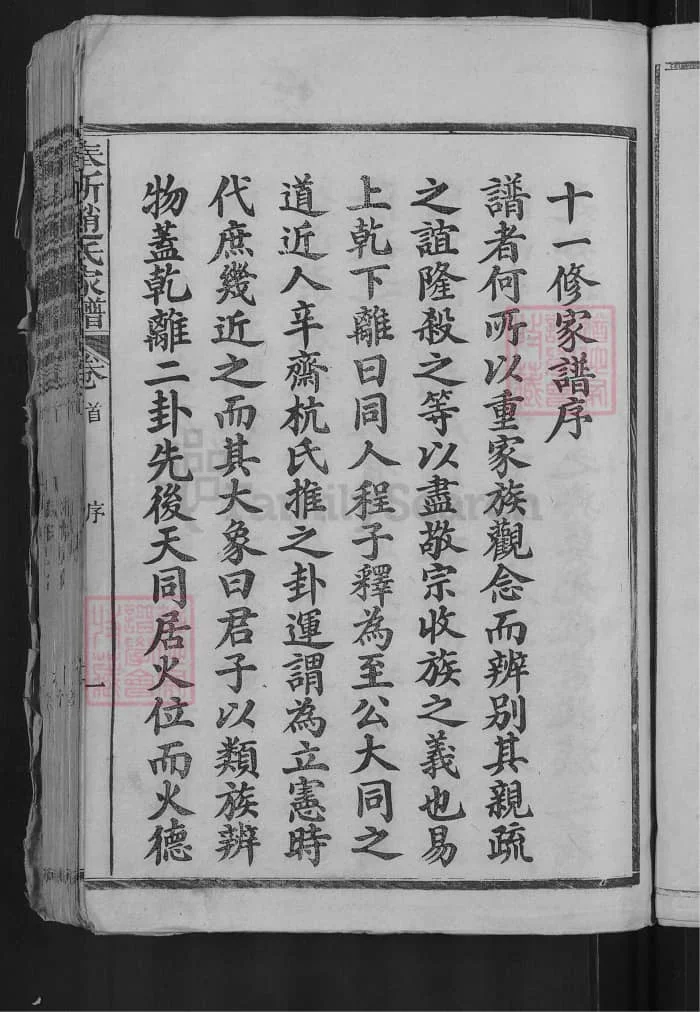 十一修家譜序
譜者何所以重家族觀念而辨別其親疏
之誼隆殺之等以盡敬宗收族之義也易
上乾下離曰同人程子釋為至公大同之
道近人辛齋杭氏推之卦運謂為立憲時
代庶幾近之而其大象曰君子以類族辨
物蓋乾離二卦先後天同居火位而火德
氏家譜 卷首 序 一
FamilySearch